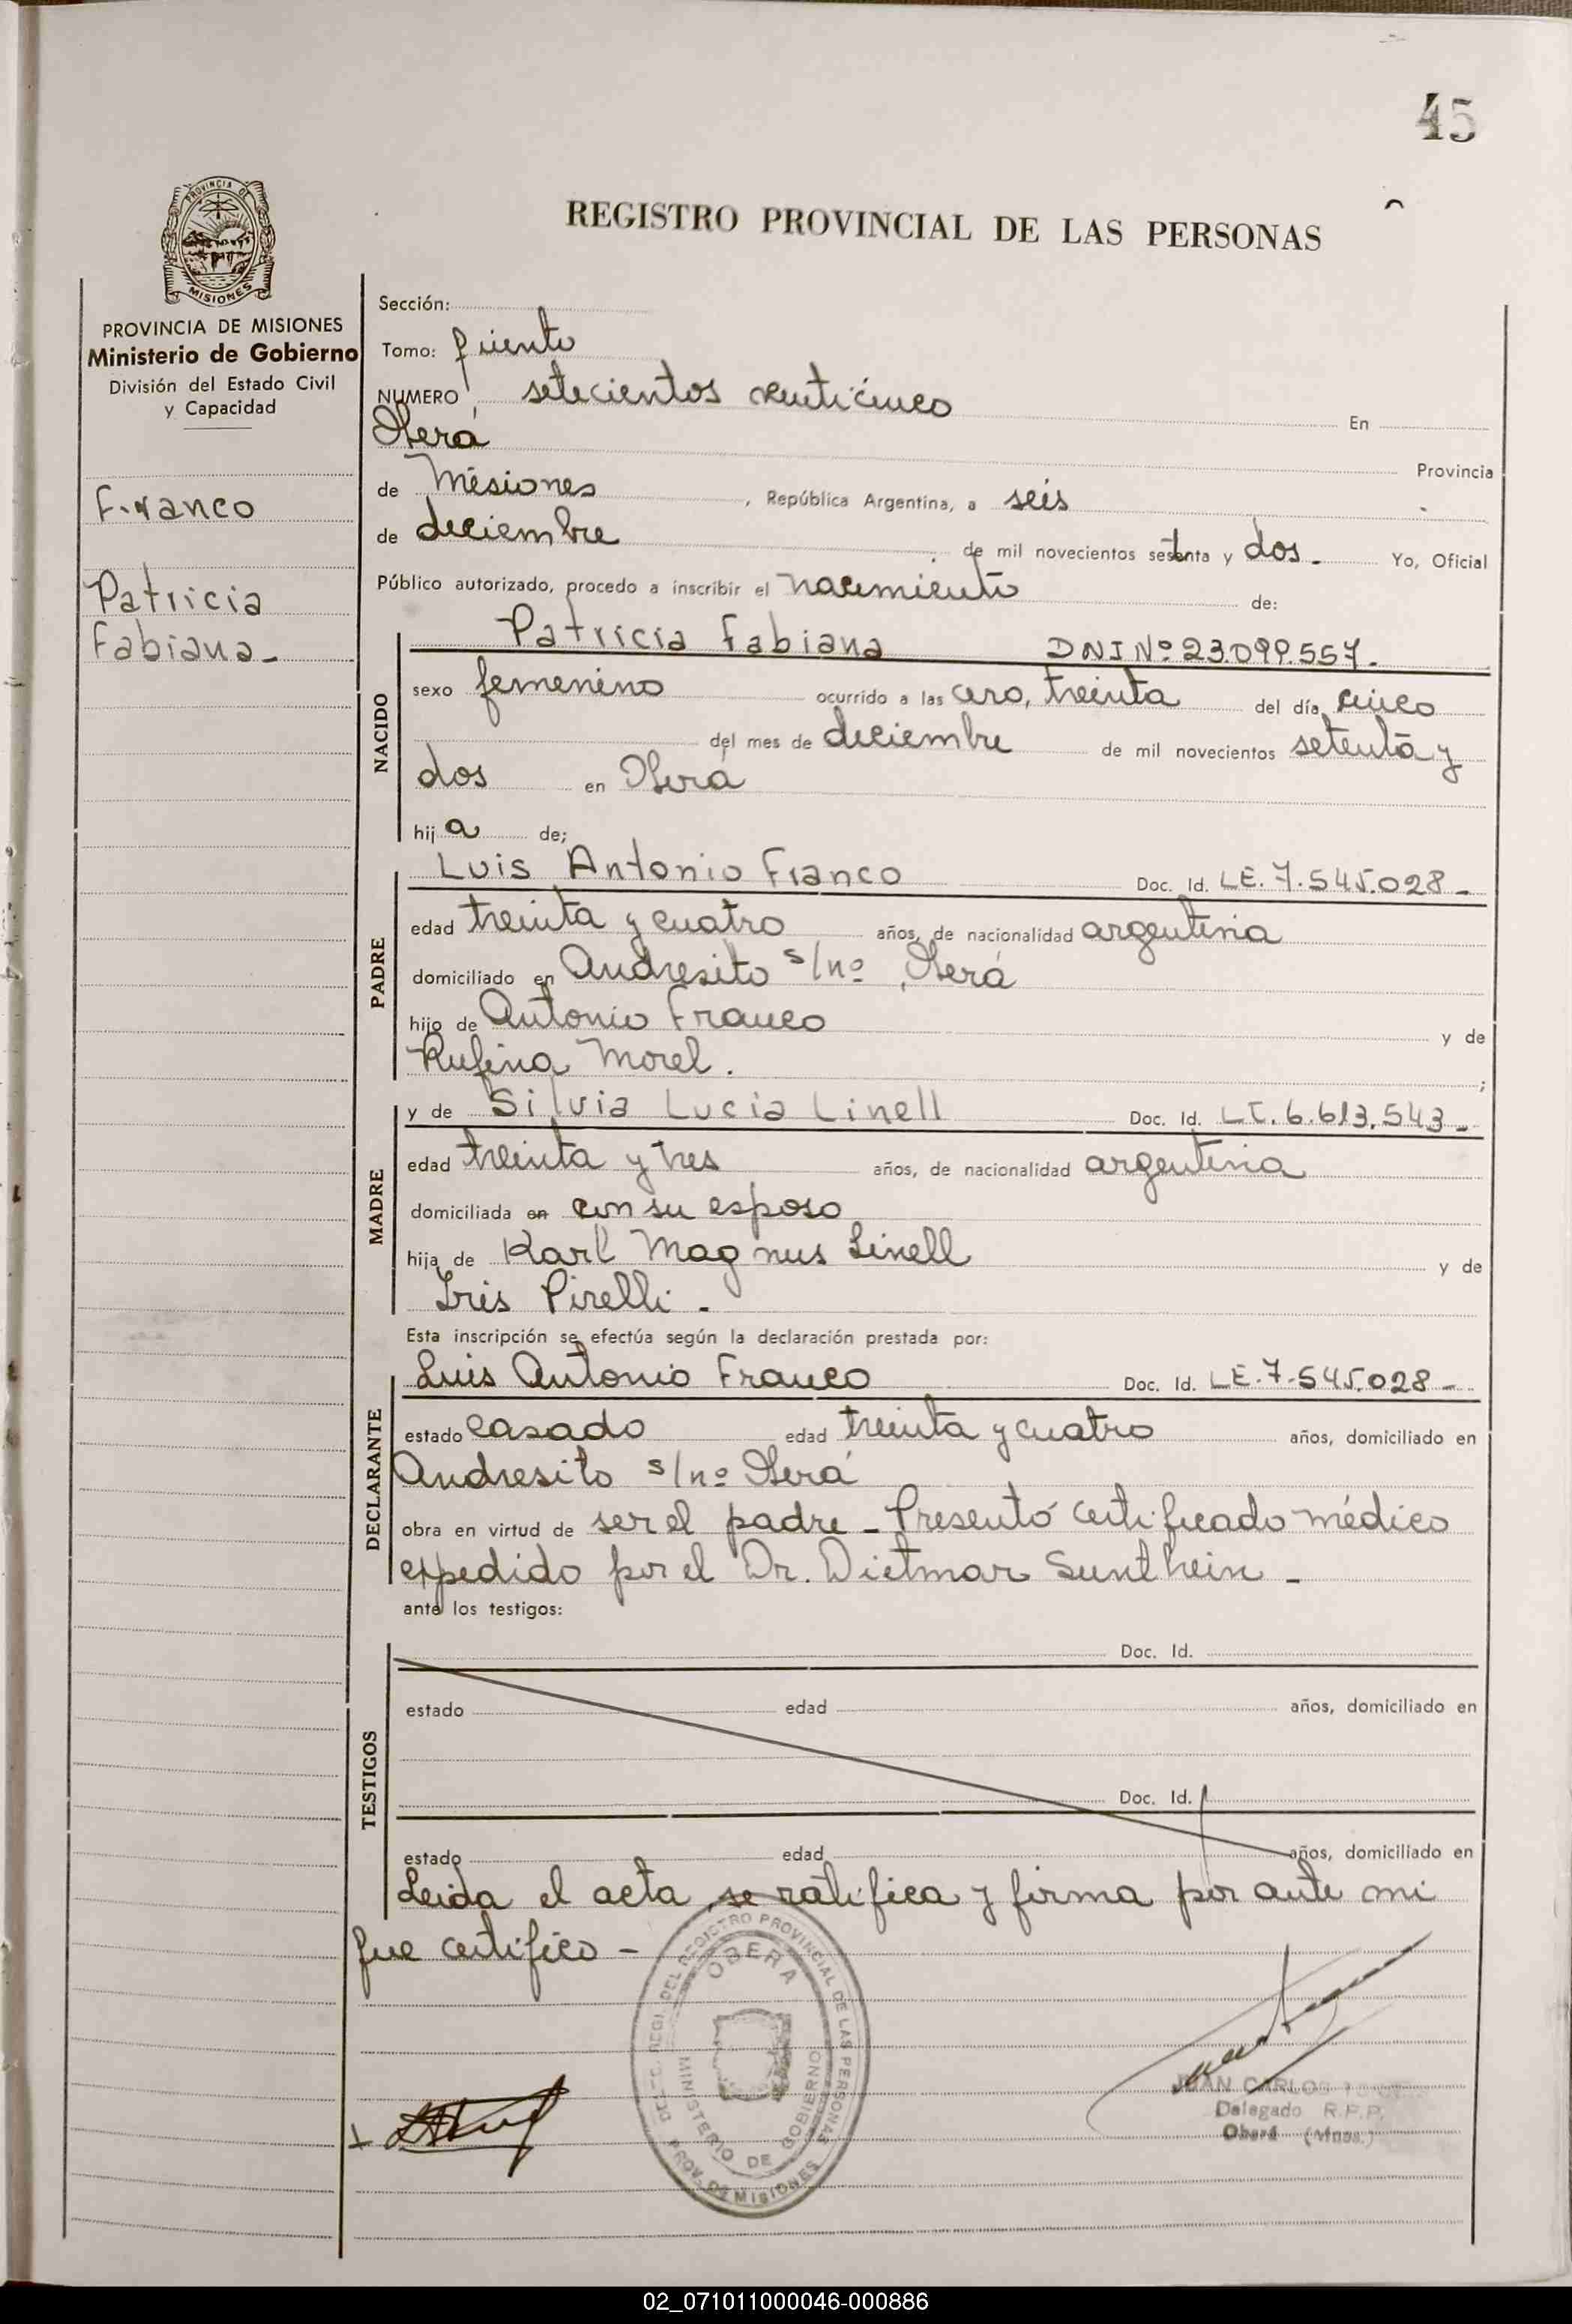 45
PROVINCIA DE
MISIONES
REGISTRO PROVINCIAL DE LAS PERSONAS
PROVINCIA DE MISIONES
Ministerio de Gobierno
División del Estado Civil
y Capacidad
Franco
Patricia
Fabiana-
Sección:
Tomo: quinto
NUMERO setecientos veinticinco En
Oberá Provincia
de Misiones, República Argentina, a seis
de diciembre de mil novecientos setenta y dos.- Yo, Oficial
Público autorizado, procedo a inscribir el nacimiento de:
NACIDO
Patricia Fabiana DNI Nº 23.099.557.
sexo femenino ocurrido a las cero, treinta del día cinco
del mes de diciembre de mil novecientos setenta y
dos en Oberá
hija de;
PADRE
Luis Antonio Franco Doc. Id. LE. 7.545.028-
edad treinta y cuatro años, de nacionalidad argentina
domiciliado en Andresito s/nº, Oberá
hijo de Antonio Franco y de
Rufina Morel.;
MADRE
y de Silvia Lucia Linell Doc. Id. 6.613.543-
edad treinta y tres años, de nacionalidad argentina
domiciliada en con su esposo
hija de Karl Magnus Linell y de
Iris Pirelli.-
Esta inscripción se efectúa según la declaración prestada por:
DECLARANTE
Luis Antonio Franco Doc. Id. LE. 7.545.028-
estado casado edad treinta y cuatro años, domiciliado en
Andresito s/nº Oberá
obra en virtud de ser el padre - Presentó certificado médico
expedido por el Dr. Dietmar Sunthein -
ante los testigos:
TESTIGOS
Doc. Id.
estado edad años, domiciliado en
Doc. Id.
estado edad años, domiciliado en
Leida el acta, se ratifica y firma por ante mi
que certifico -
DEL REGISTRO PROVINCIAL DE LAS PERSONAS
OBERA
MINISTERIO DE GOBIERNO
PROV. DE MISIONES
JUAN CARLOS
Delegado R.P.P.
Oberá (Mnes.)
02_071011000046-000886